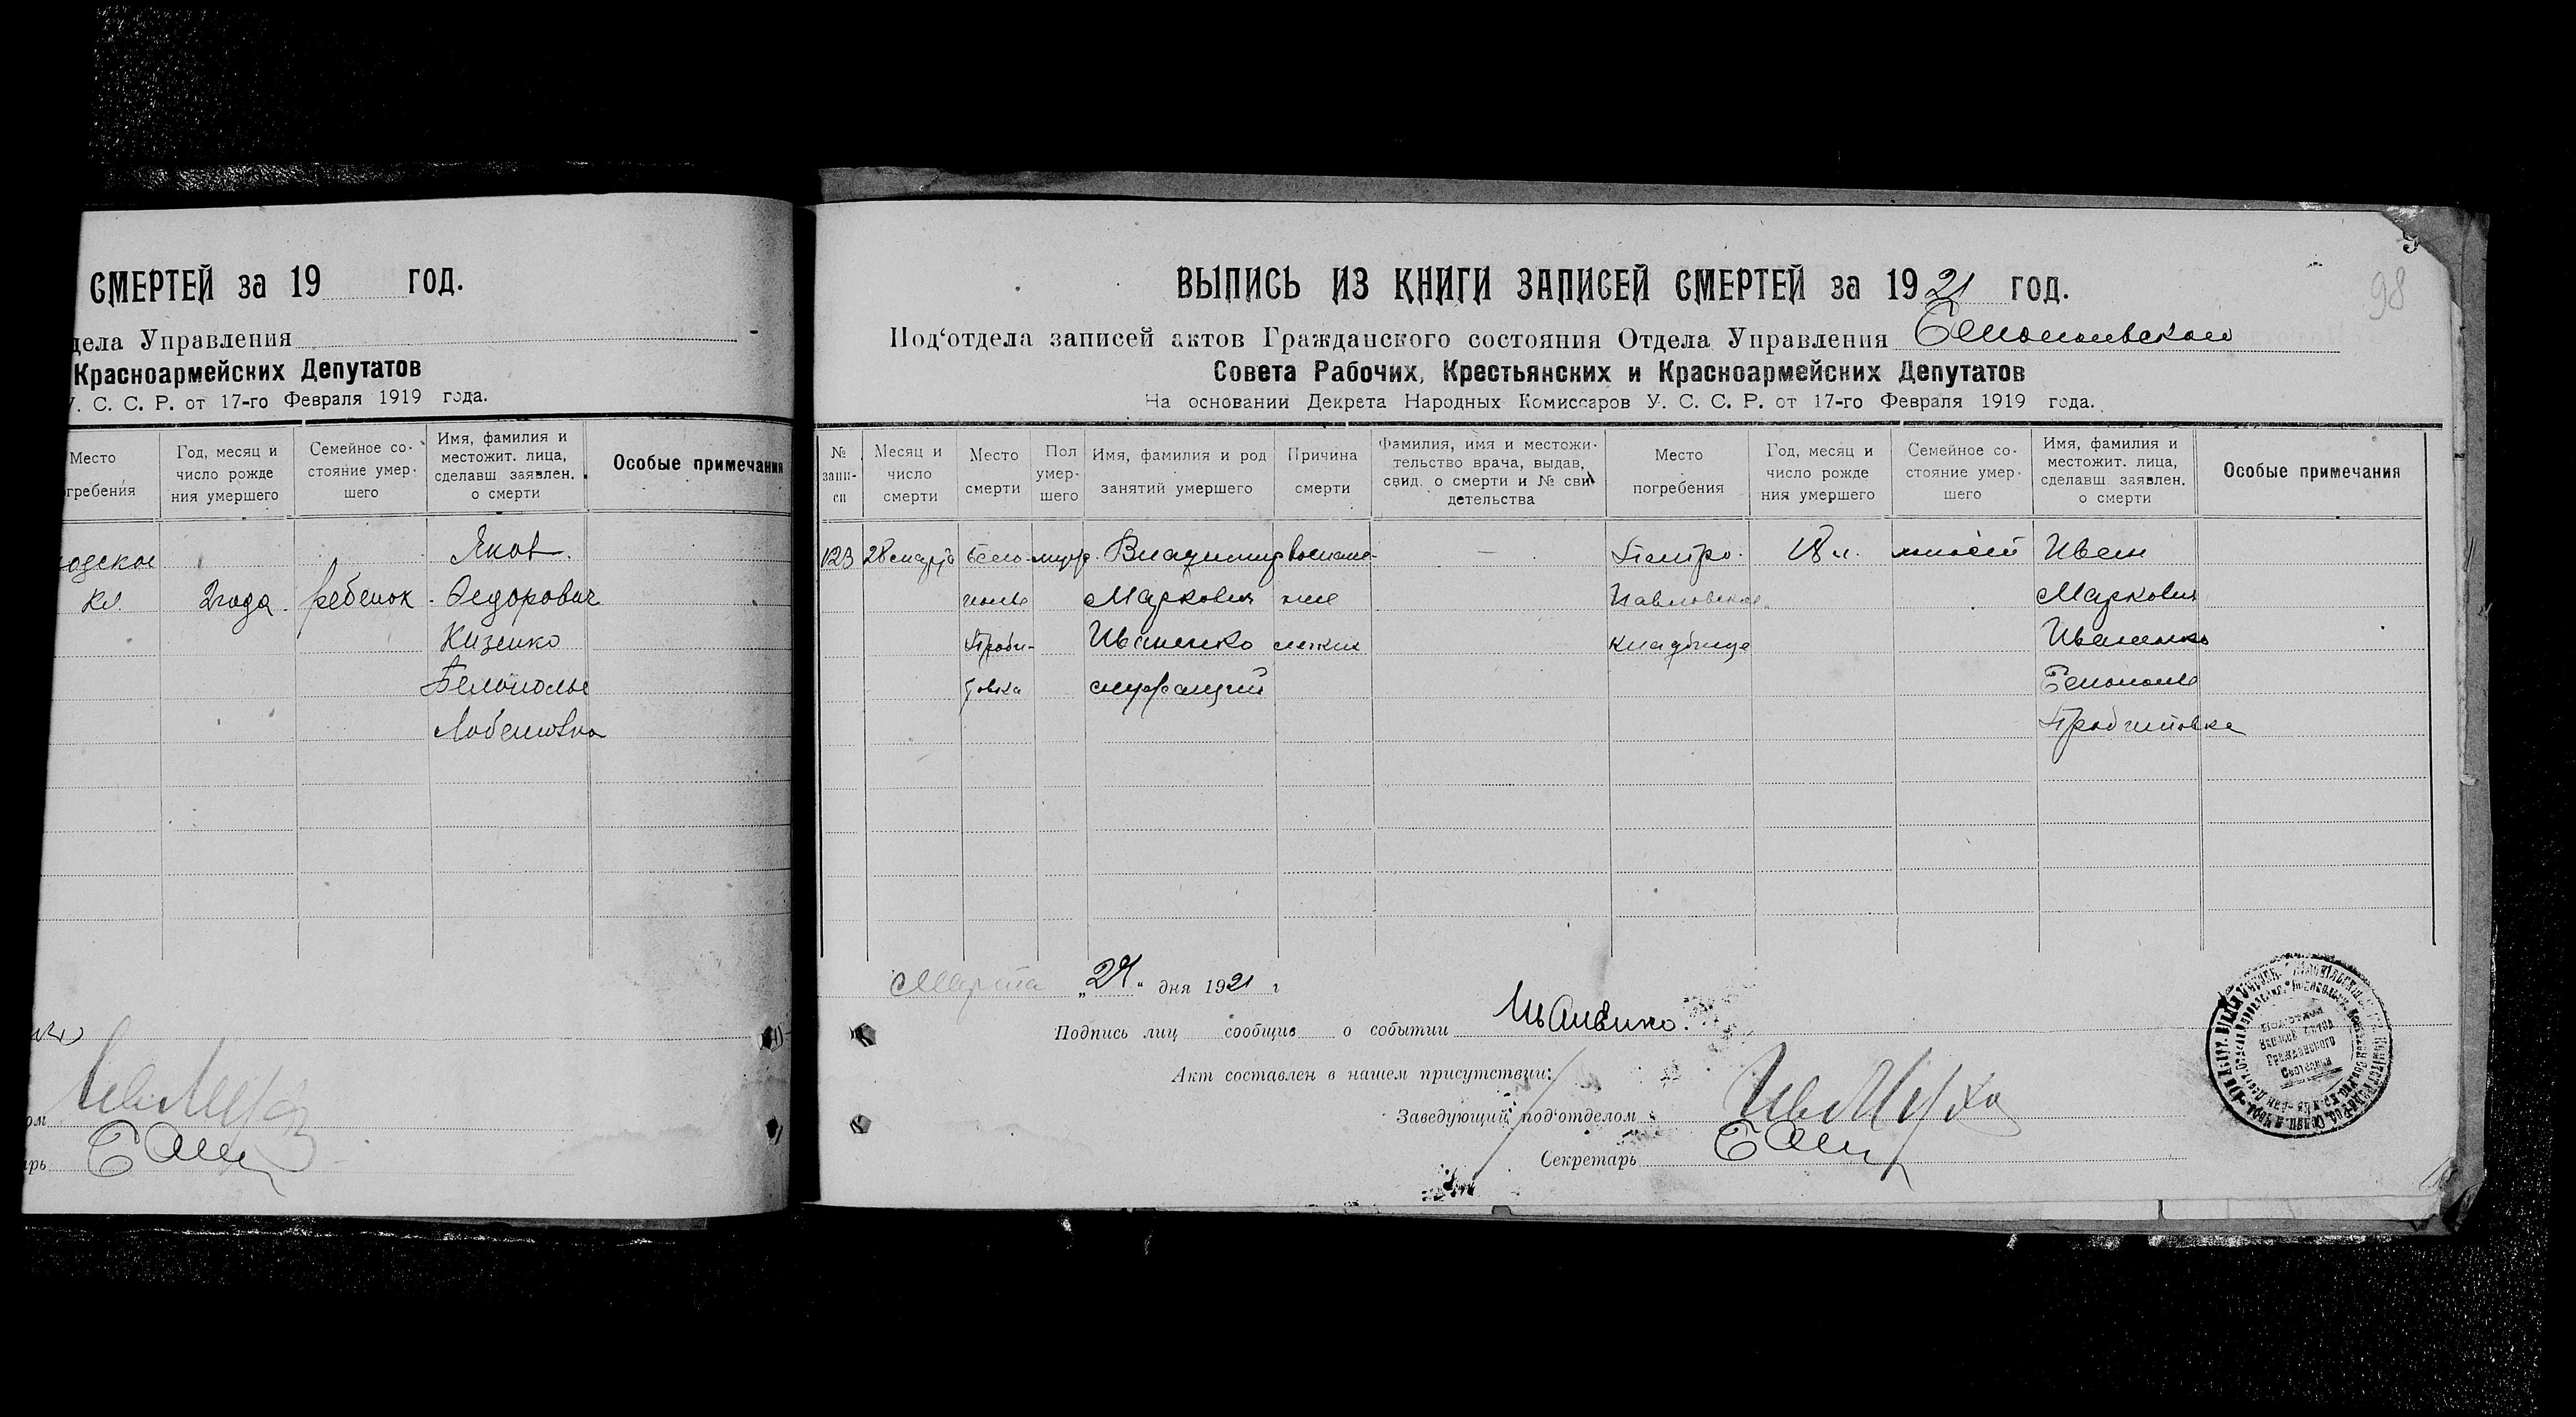 СМЕРТЕЙ за 19 год.
дела Управления
Красноармейских Депутатов
У. С. С. Р. от 17-го Февраля 1919 года.
Место
погребения
Год, месяц и
число рожде
ния умершего
Семейное со-
стояние умер-
шего
Имя, фамилия и
местожит. лица,
сделавш заявлен.
о смерти
Особые примечания
Яков
кл. 2 года ребенок Федорович
Кизенко
Белополье
Лобановка
98
ВЫПИСЬ ИЗ КНИГИ ЗАПИСЕЙ СМЕРТЕЙ за 1921 год.
Под'отдела записей актов Гражданского состояния Отдела Управления
Совета Рабочих, Крестьянских и Красноармейских Депутатов
На основании Декрета Народных Комиссаров У. С. С. Р. от 17-го Февраля 1919 года.
№
запи-
си
Месяц и
число
смерти
Место
смерти
Пол
умер-
шего
Имя, фамилия и род
занятий умершего
Причина
смерти
Фамилия, имя и местожи-
тельство врача, выдав,
свид. о смерти и № сви
детельства
Место
погребения
Год, месяц и
число рожде
ния умершего
Семейное со-
стояние умер-
шего
Имя, фамилия и
местожит. лица,
сделавш заявлен.
о смерти
Особые примечания
123 28 марта Бело- Владимир воспале- — Петро- 18 л. Иван
полье Маркович ние Павловское Маркович
Иваненко легких кладбище Иваненко
служащий Белополье
Марта „29“ дня 1921 г
Подпись лиц сообщив о событии Иваненко.
Акт составлен в нашем присутствии:
Заведующий под'отделом
Секретарь
Записей Актов
Гражданского
Состояния